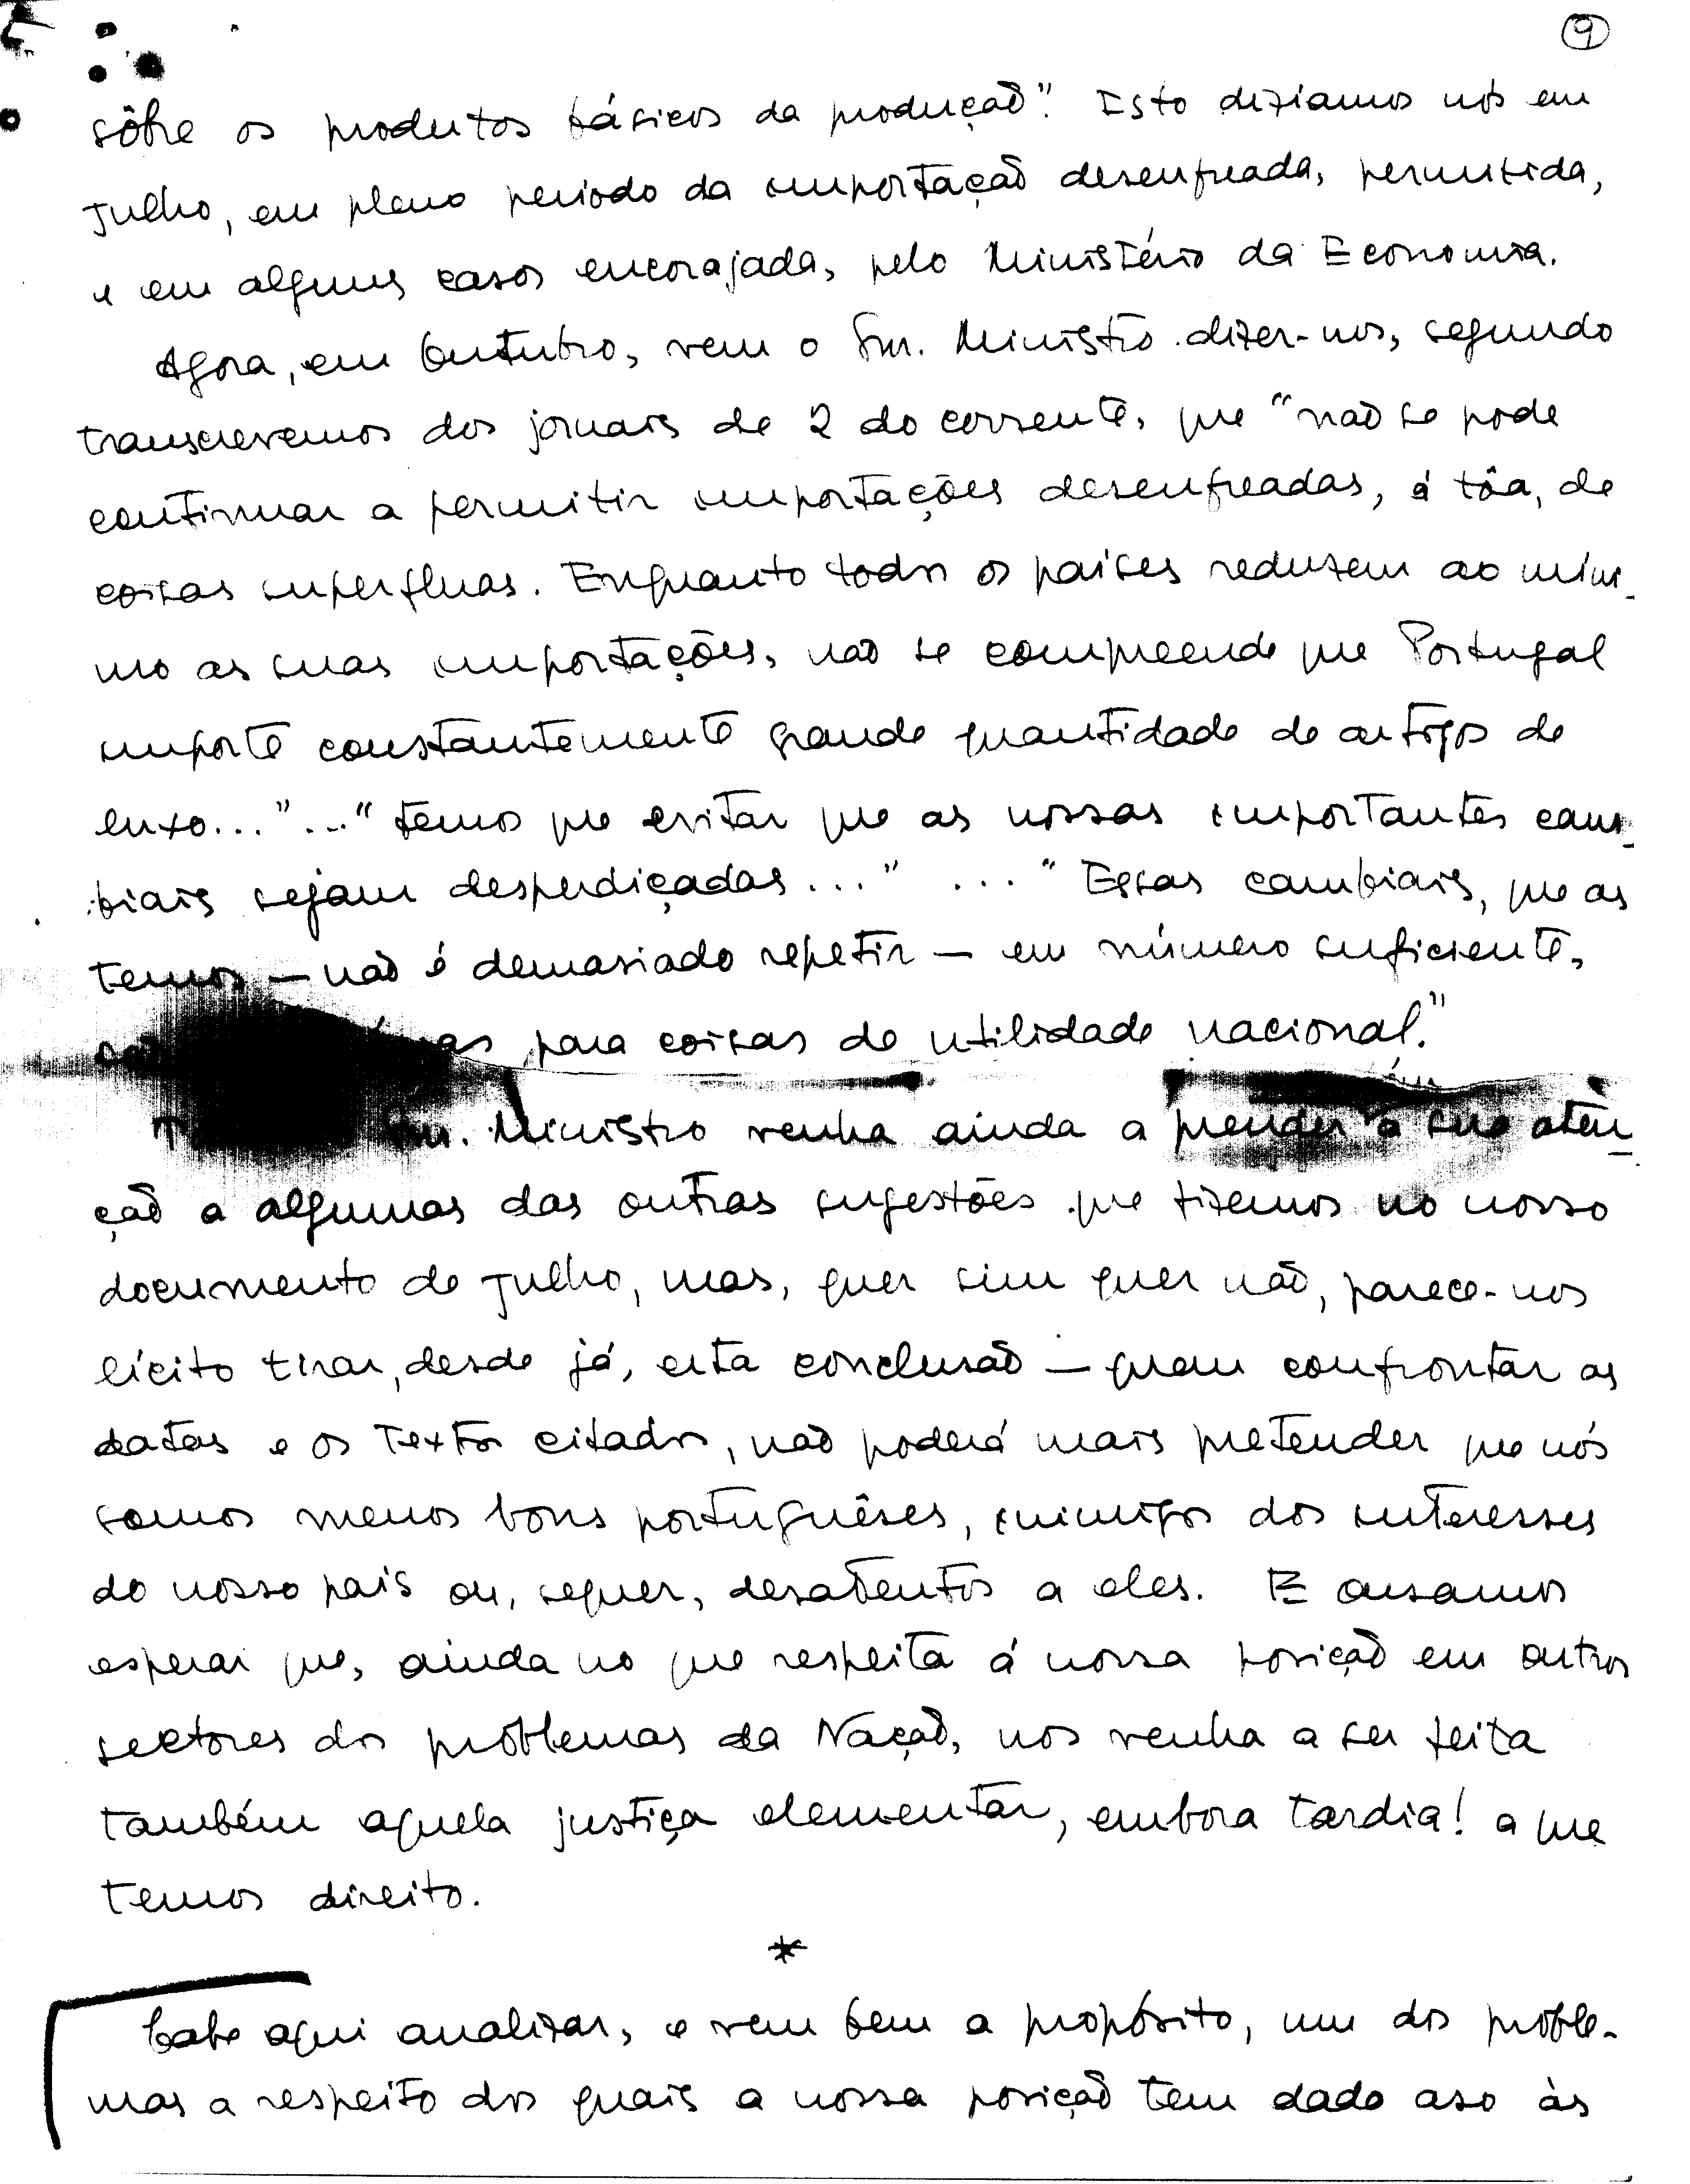 9
sôbre os produtos básicos da produção". Isto diziamos nós em
Julho, em pleno periodo da importação desenfreada, permitida,
e em alguns casos encorajada, pelo Ministério da Economia.
Agora, em Outubro, vem o Snr. Ministro dizer-nos, segundo
transcrevemos dos jornais de 2 do corrente, que "não se pode
continuar a permitir importações desenfreadas, á tôa, de
coisas superfluas. Enquanto todos os paises reduzem ao míni-
mo as suas importações, não se compreende que Portugal
importe constantemente grande quantidade de artigos de
luxo..."..." temos que evitar que as nossas importantes cam-
biais sejam desperdiçadas..." ..." Essas cambiais, que as
temos — não é demasiado repetir — em número suficiente,
para coisas de utilidade nacional."
Snr. Ministro venha ainda a prender a sua aten-
ção a algumas das outras sugestões que fizemos no nosso
documento de Julho, mas, quer sim quer não, parece-nos
lícito tirar, desde já, esta conclusão — quem confrontar as
datas e os textos citados, não poderá mais pretender que nós
somos menos bons portuguêses, inimigos dos interesses
do nosso pais ou, sequer, desatentos a eles. E ousamos
esperar que, ainda no que respeita á nossa posição em outros
sectores dos problemas da Nação, nos venha a ser feita
também aquela justiça elementar, embora tardia! a que
temos direito.
*
Cabe aqui analizar, e vem bem a propósito, um dos proble-
mas a respeito dos quais a nossa posição tem dado aso às